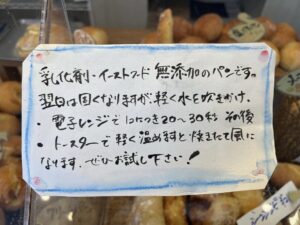 乳化剤・イーストフード 無添加のパンです。
翌日は固くなりますが、軽く水を吹きかけ、
・電子レンジで 1コにつき20〜30秒 その後
・トースターで 軽く温めますと 焼きたて風に
なります。ぜひお試し下さい!